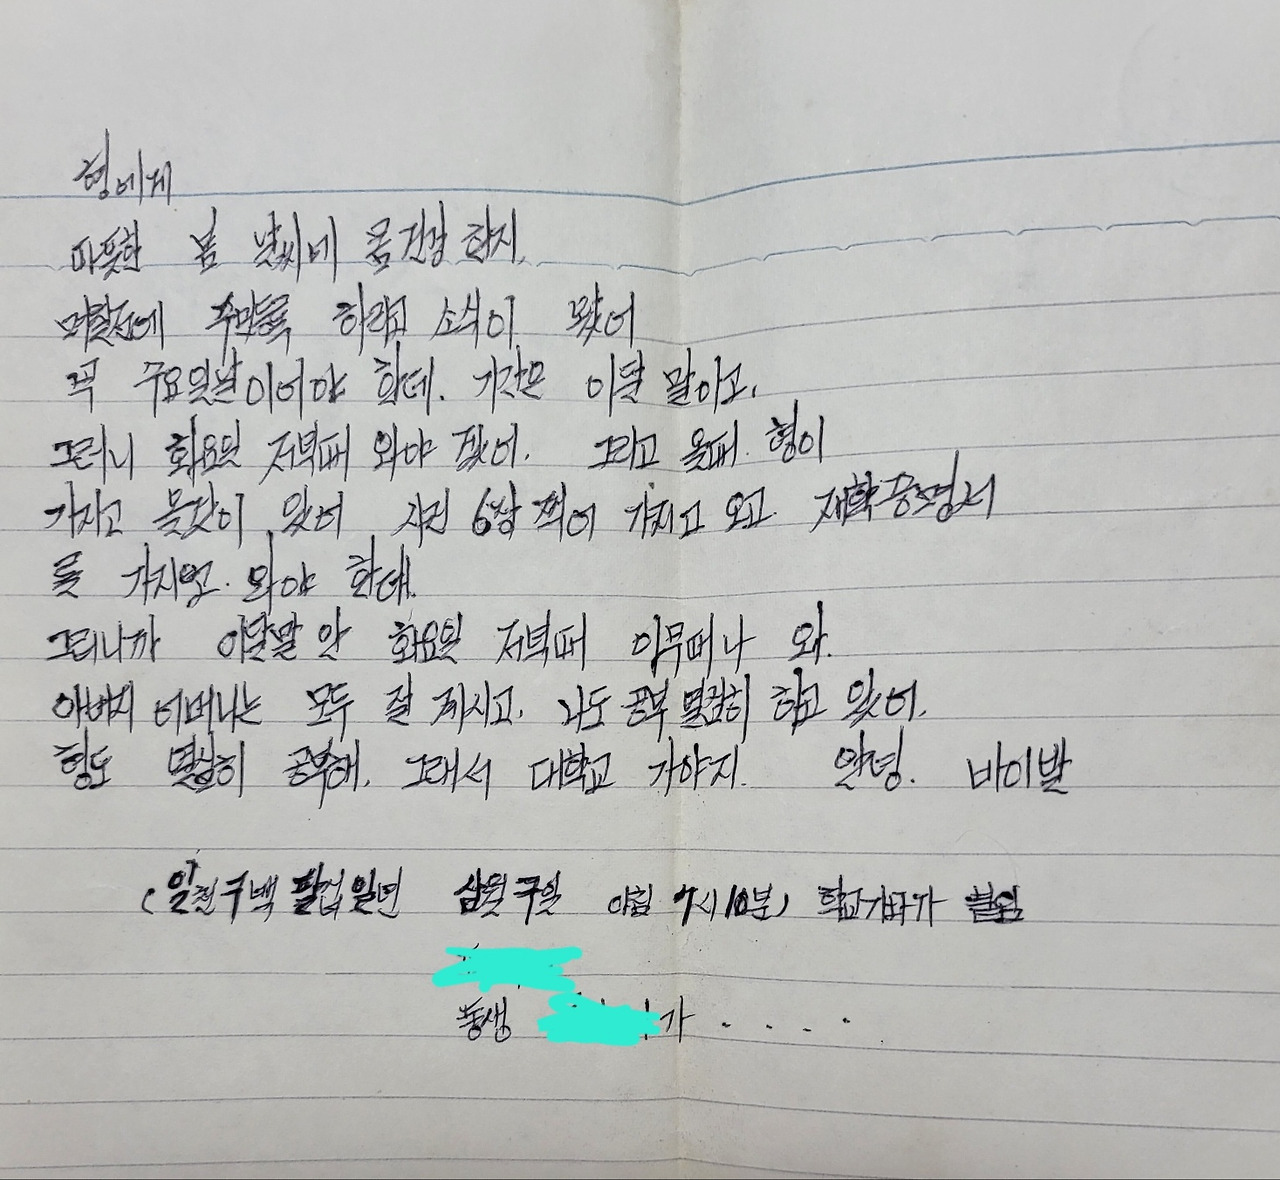 형에게
따뜻한 봄 날씨에 몸 건강 한지,
며칠전에 주민등록 하라고 소식이 왔어
꼭 수요일날이어야 한데. 기간은 이달 말이고,
그러니 화요일 저녁때 와야 겠어. 그리고 올때. 형이
가지고 올것이 있어 사진 6장 찍어 가지고 오고 재학증명서
를 가지고. 와야 한데.
그러니까 이달말 안 화요일 저녁때 아무때나 와.
아버지 어머니는 모두 잘 계시고, 나도 공부 열심히 하고 있어.
형도 열심히 공부해, 그래서 대학교 가야지. 안녕. 바이발
(일천구백 팔십일년 삼월 구일 아침 7시 10분) 학교가다가
동생 가 . . . .